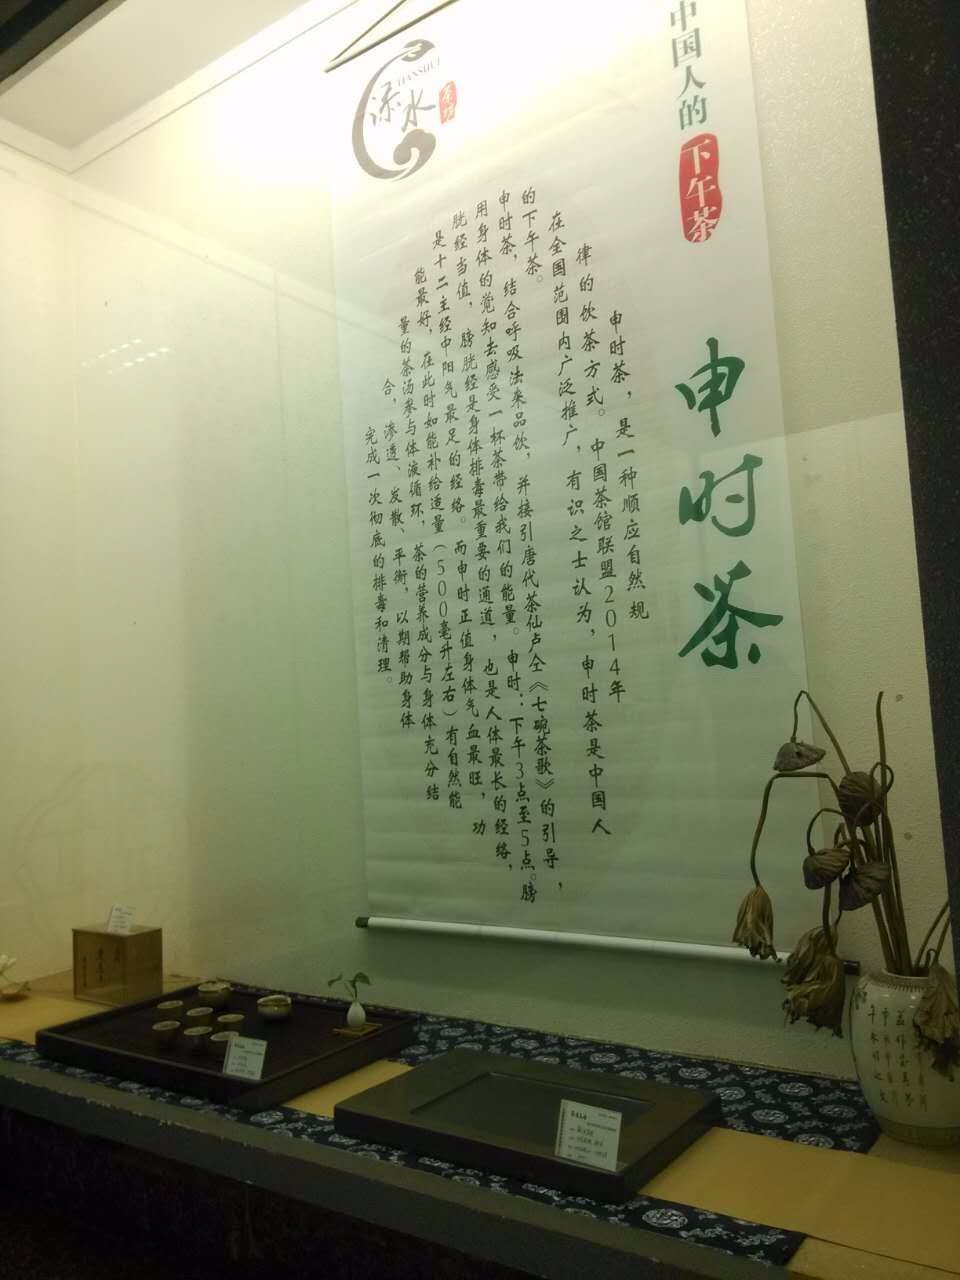 中国人的
下午茶
申时茶
申时茶，是一种顺应自然规
律的饮茶方式。中国茶馆联盟2014年
在全国范围内广泛推广，有识之士认为，申时茶是中国人
的下午茶。
申时茶，结合呼吸法来品饮，并接引唐代茶仙卢仝《七碗茶歌》的引导，
用身体的觉知去感受一杯茶带给我们的能量。申时：下午3点至5点。膀
胱经当值，膀胱经是身体排毒最重要的通道，也是人体最长的经络，
是十二主经中阳气最足的经络。而申时正值身体气血最旺，功
能最好，在此时如能补给适量（500毫升左右）有自然能
量的茶汤参与体液循环，茶的营养成分与身体充分结
合，渗透、发散、平衡，以期帮助身体
完成一次彻底的排毒和清理。
TIANSHUI
添水